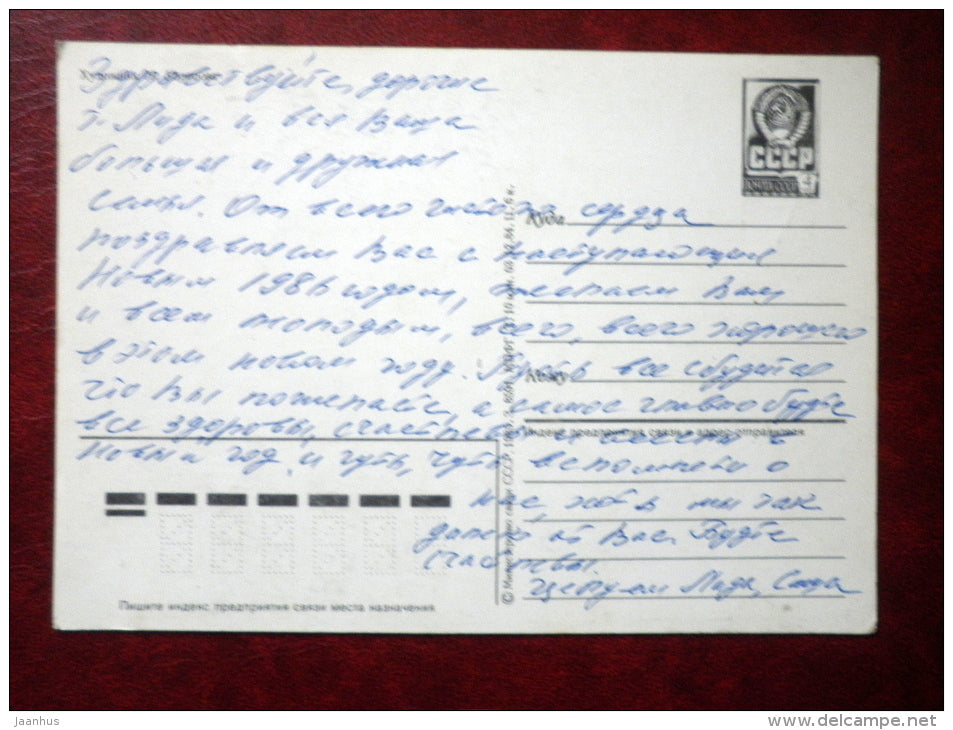 Здравствуйте, дорогие
т. Лида и вся Ваша
большая и дружная
семья. От всего чистого сердца
поздравляем Вас с наступающим
Новым 1986 годом, желаем Вам
и всем молодым, всего, всего хорошего
в этом новом году. Пусть все сбудется
что Вы пожелаете, а самое главное будьте
все здоровы, счастливы
Новый год и чуть, чуть вспомните о
нас, хоть мы так
далеко от Вас. Будьте
счастливы.
Целуем Лида, Саша
СССР
4
Куда
Кому
Индекс предприятия связи и адрес отправителя
Пишите индекс предприятия связи места назначения
© Министерство связи СССР.
Jaanhus
www.delcampe.net